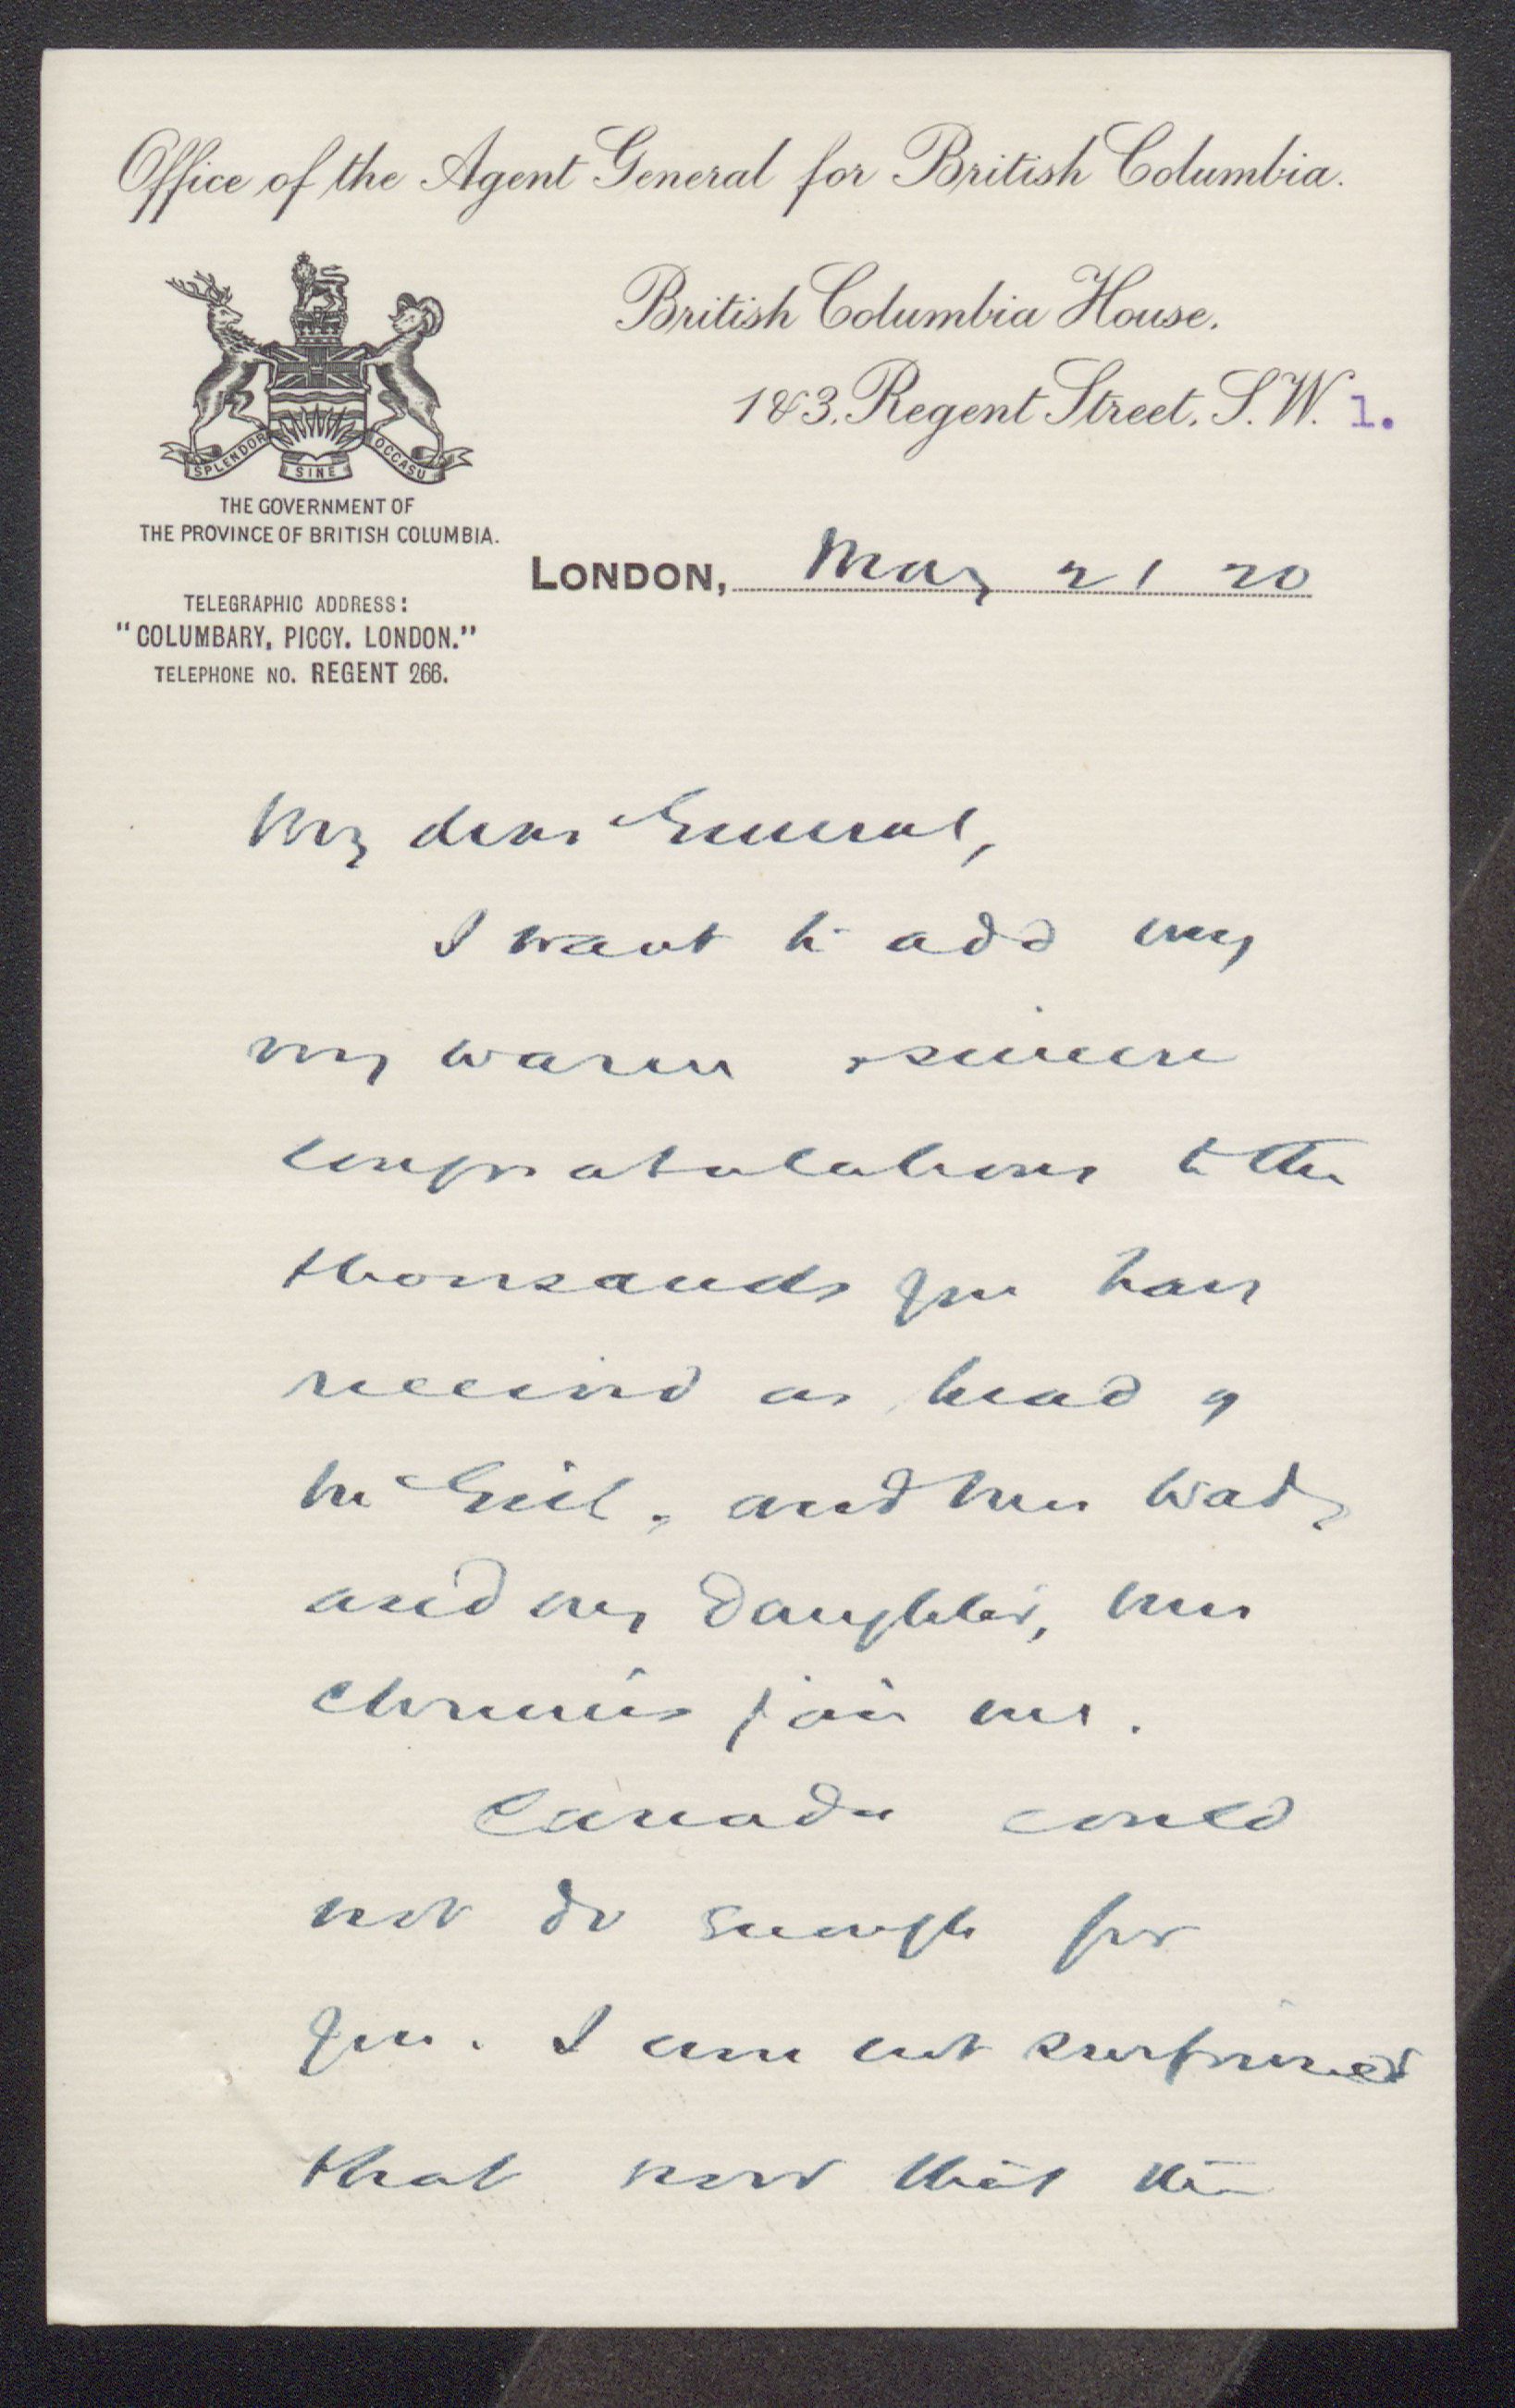 Office of the Agent General for British Columbia.
British Columbia House.
1&3, Regent Street, S.W. 1.
SPLENDOR SINE OCCASU
THE GOVERNMENT OF
THE PROVINCE OF BRITISH COLUMBIA.
LONDON, May 21 20
TELEGRAPHIC ADDRESS:
"COLUMBARY, PICCY. LONDON."
TELEPHONE NO. REGENT 266.
My dear General,
I want to add my
my warm & sincere
congratulations to the
thousands you have
received as head of
McGill, and Mrs Wade
and my daughter, Mrs
join me.
Canada could
not do enough for
you. I am not surprised
that now that the